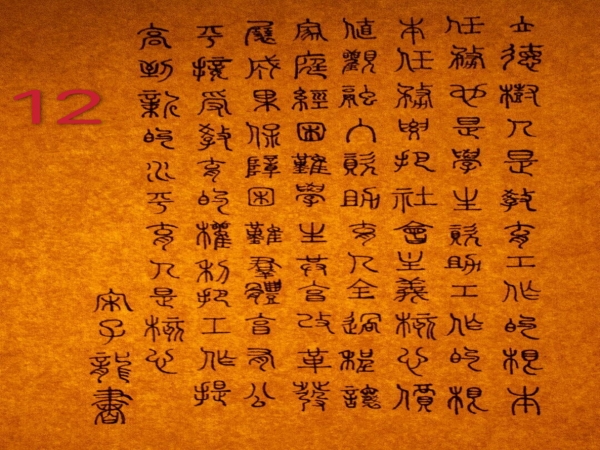 立德樹人是教育工作的根本
任務也是學生資助工作的根
本任務要把社會主義核心價
值觀融入資助育人全過程讓
家庭經困難學生共享改革發
展成果保障困難群體享有公
平接受教育的權利把工作提
高到新的水平育人是核心
宋子龍書
12